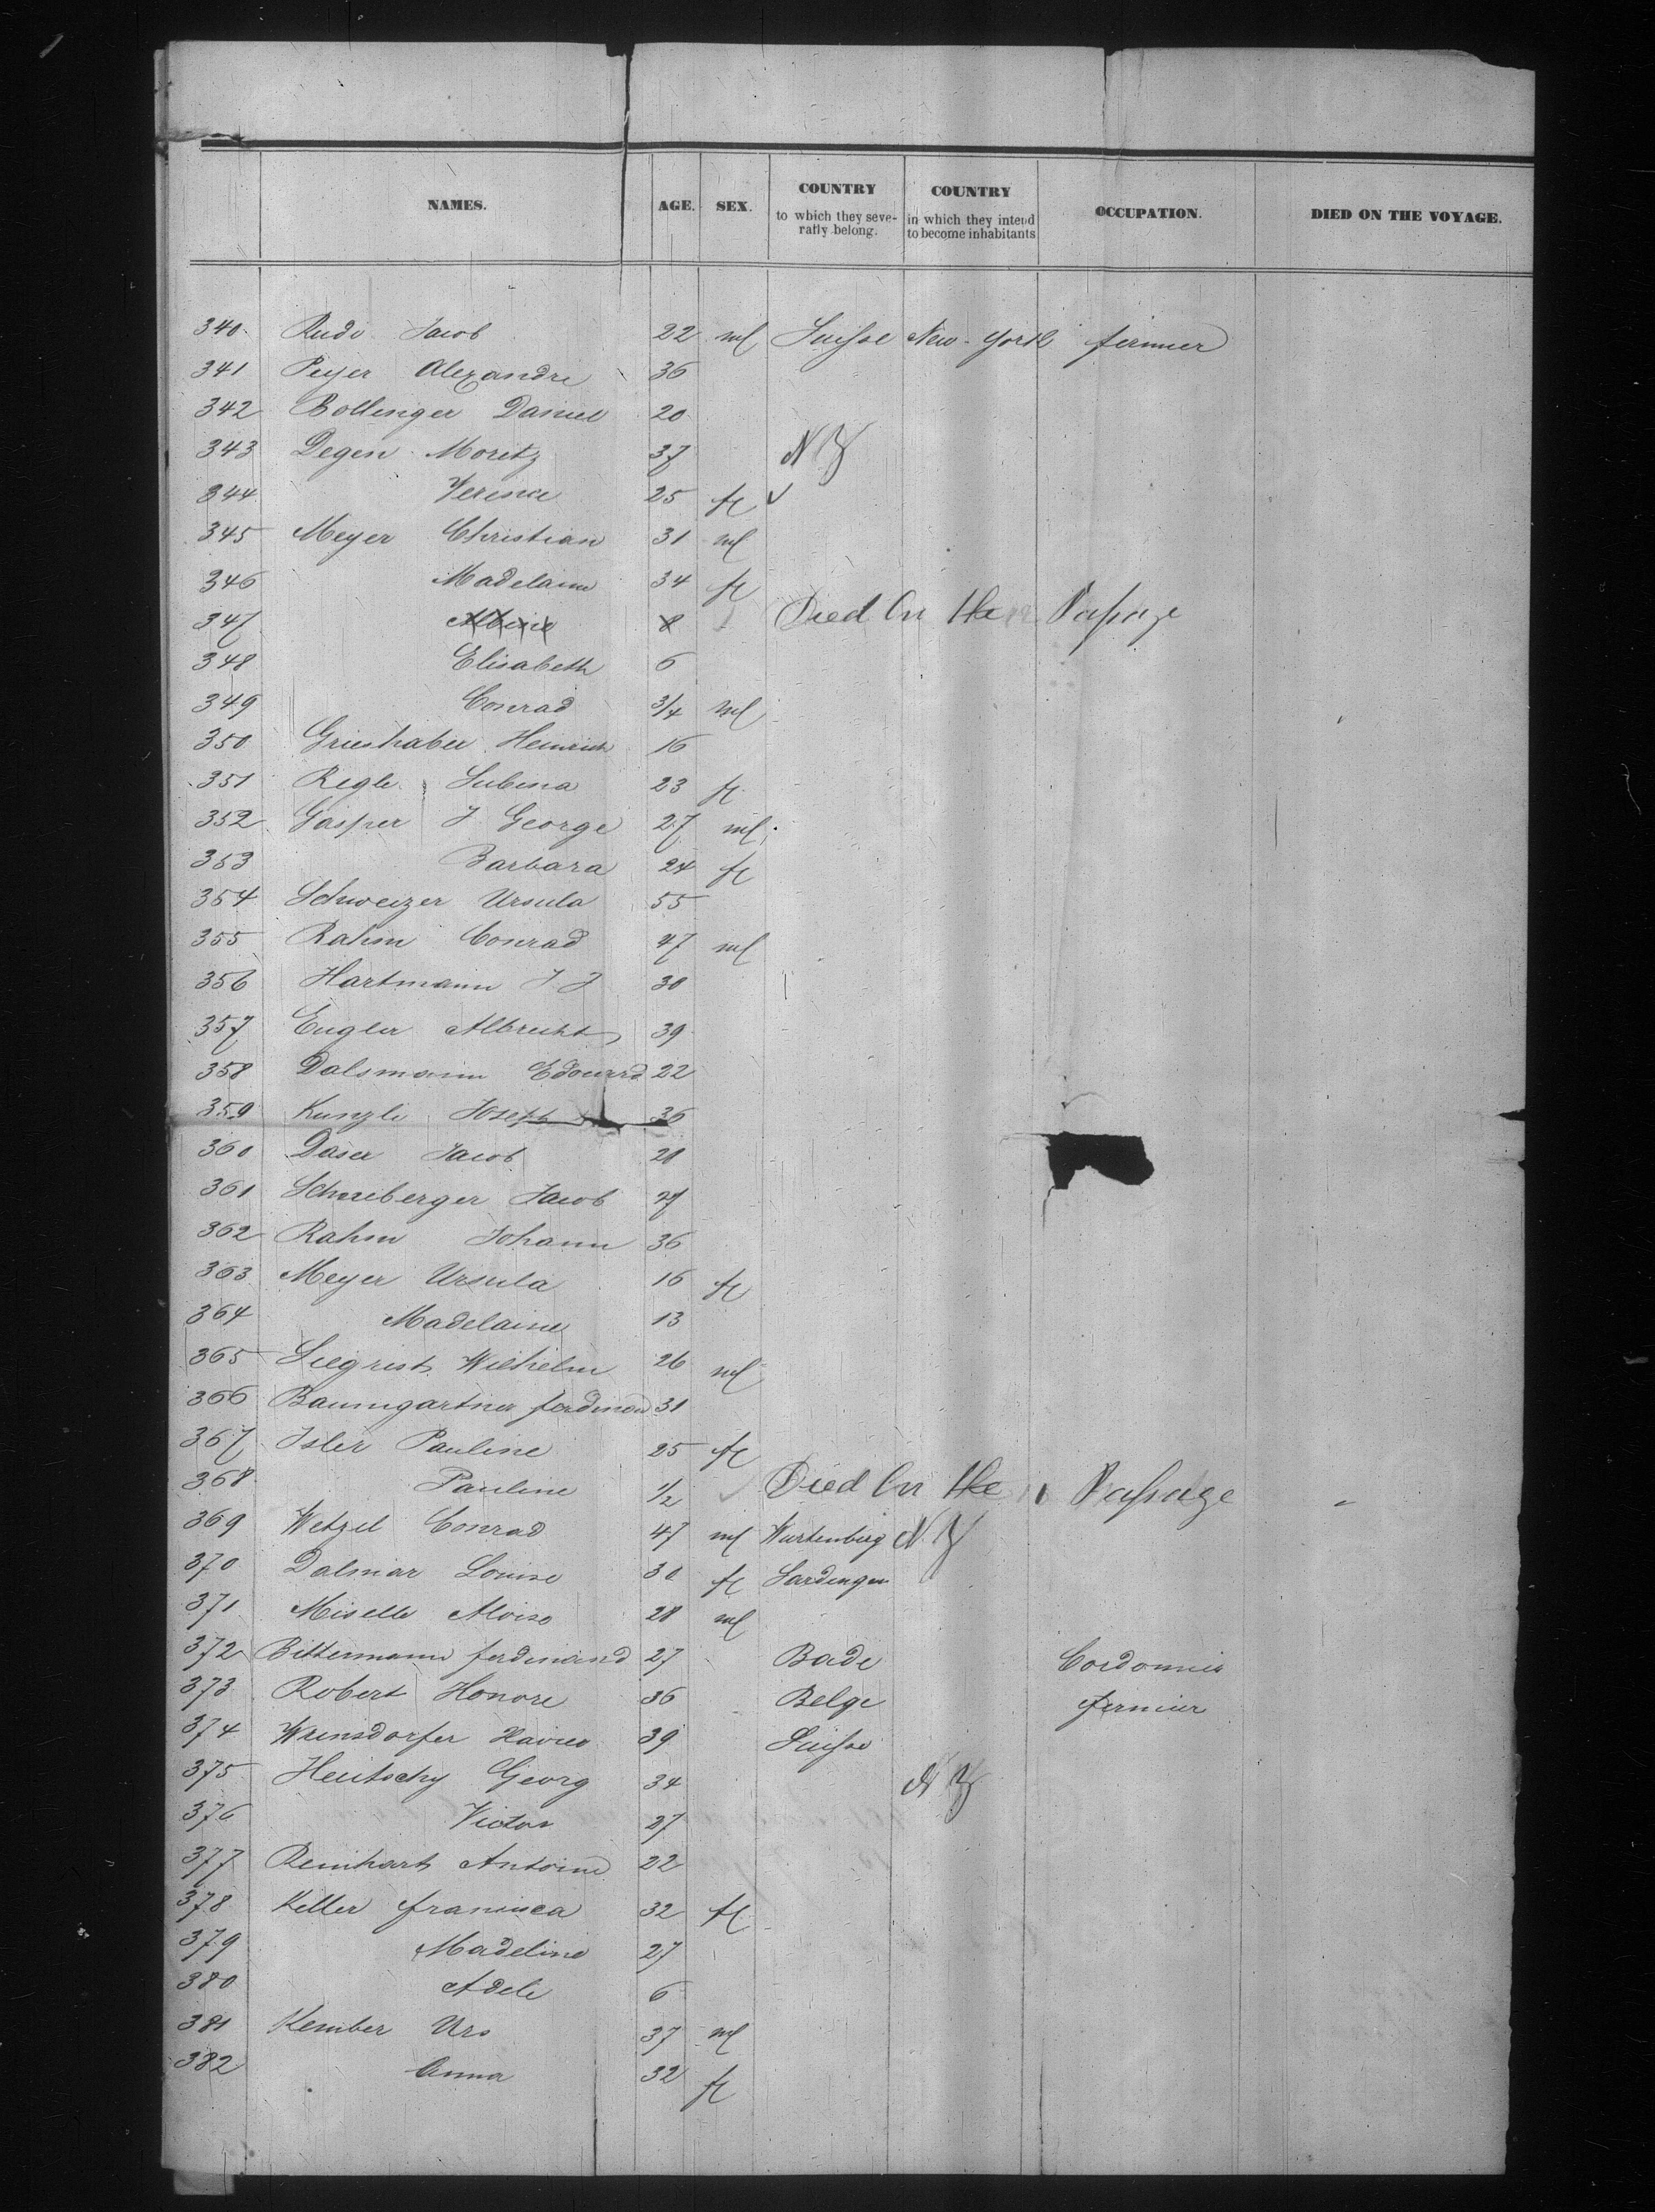 NAMES. AGE. SEX. COUNTRY to which they severally belong. COUNTRY in which they intend to become inhabitants OCCUPATION. DIED ON THE VOYAGE.
340. Rudi Jacob 22 ml Suisse New-York fermier
341 Peyer Alexandre 36
342 Bollinger Daniel 20
343 Degen Moritz 37 N Y
344 25 fl ✓
345 Meyer Christian 31 ml
346 Madelaine 34 fl
347 Albine 8 Died On the Passage
348 Elisabeth 6
349 Conrad 3/4 ml
350 Grieshaber Heinrich 16
351 Regli Subina 23 fl
352 Gasper J George 27 ml
353 Barbara 24 fl
354 Schweizer Ursula 55
355 Rahm Conrad 47 ml
356 Hartmann J J 30
357 Engler Albrecht 39
358 Dalsmann Edouard 22
359 Kunzli Joseph 36
360 Daser Jacob
361 Jacob
362 Rahm Johann 36
363 Meyer Ursula 16 fl
364 Madelaine 13
365 Siegrist Wilhelm 26 ml
366 Baumgartner ferdinand 31
367 Isler Pauline 25 fl
368 Pauline 1/2 ✓ Died On the Passage
369 Wetzel Conrad 47 ml Wurtenberg N. Y
370 Dalmar Louise 30 fl
371 Miselli Aloise 28 ml
372 Bittermann ferdinand 27 Bade Cordonnier
373 Robert Honore 36 Belge fermier
374 Xavier 39 Suisse
375 Hentschy Georg 34 N Y
376 Victor 27
377 Reinhart Antoine 22
378 Keller francisca 32 fl
379 Madeline 27
380 Adele 6
381 Kember Urs 37 ml
382 Anna 32 fl